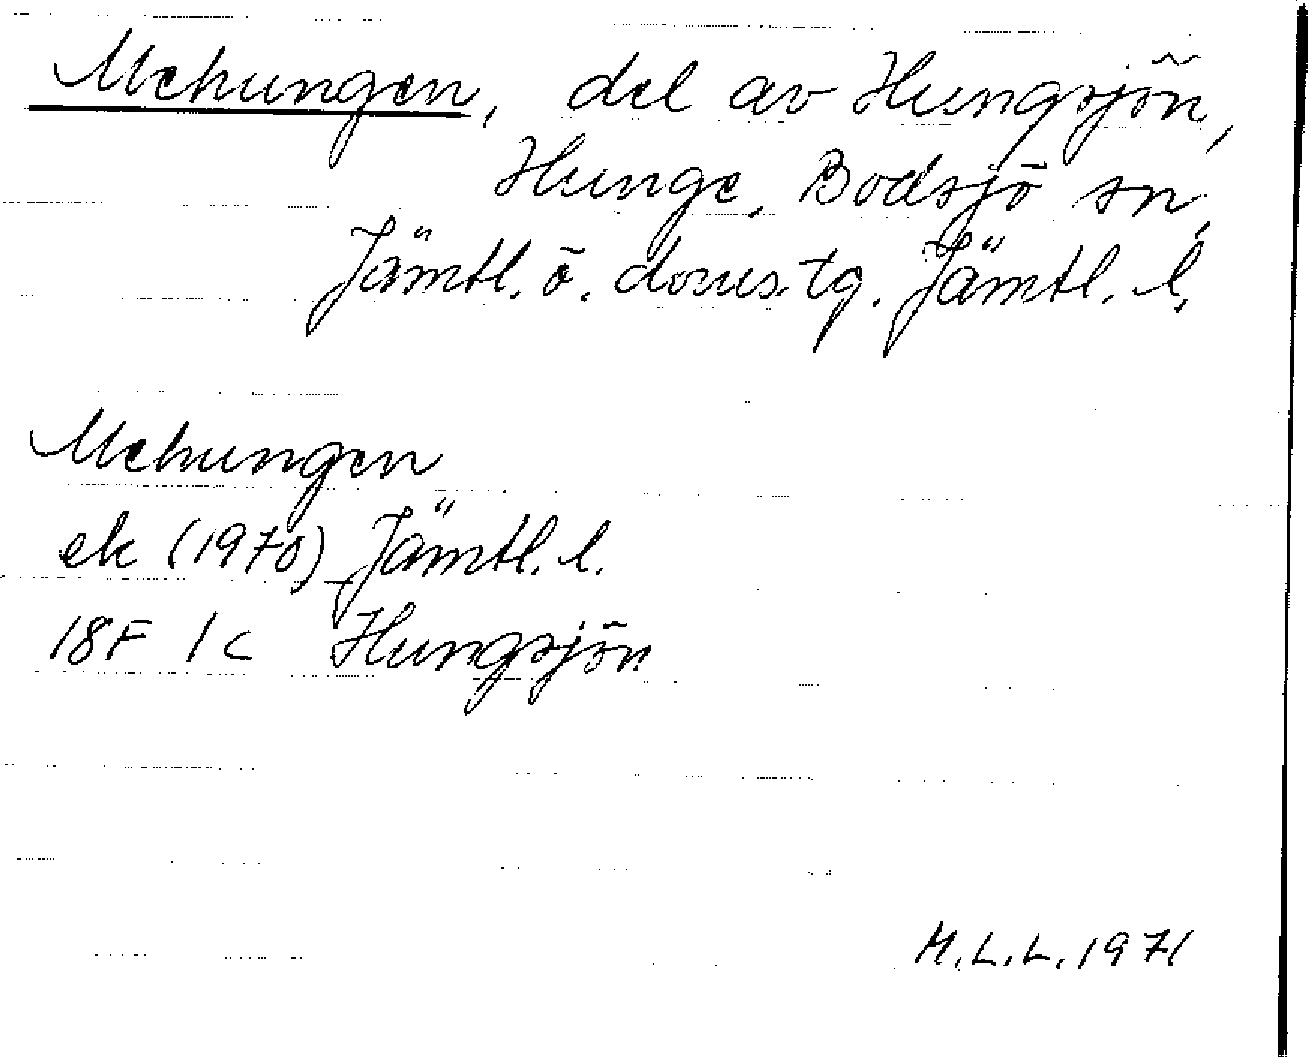 Mehungen, del av Hungsjön,
Hunge, Bodsjö sn,
Jämtl. ö. doms. tg. Jämtl. l.
Mehungen
ek (1970) Jämtl. l.
18F 1c Hungsjön
M.L.L. 1971